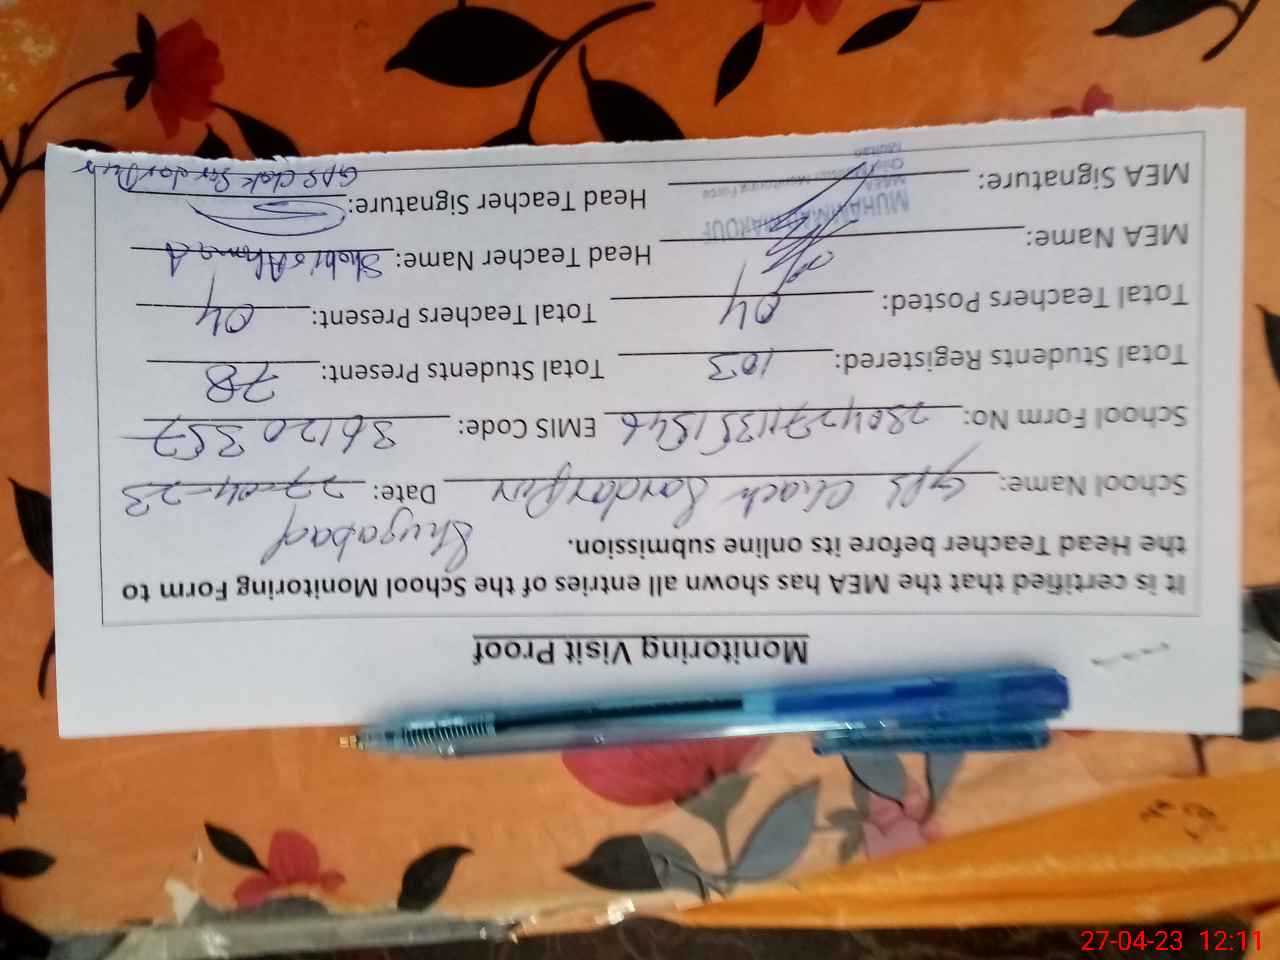 Monitoring Visit Proof
It is certified that the MEA has shown all entries of the School Monitoring Form to
the Head Teacher before its online submission.
School Name: GPS Chack Sardarpur Date: 27-04-23
School Form No: EMIS Code: 36120357
Total Students Registered: 103 Total Students Present: 78
Total Teachers Posted: 04 Total Teachers Present: 04
MEA Name: Head Teacher Name: Shabir Ahmad
MEA Signature: Head Teacher Signature:
MUHAMMAD MAROUF
GPS Chak Sardar Pur
27-04-23 12:11